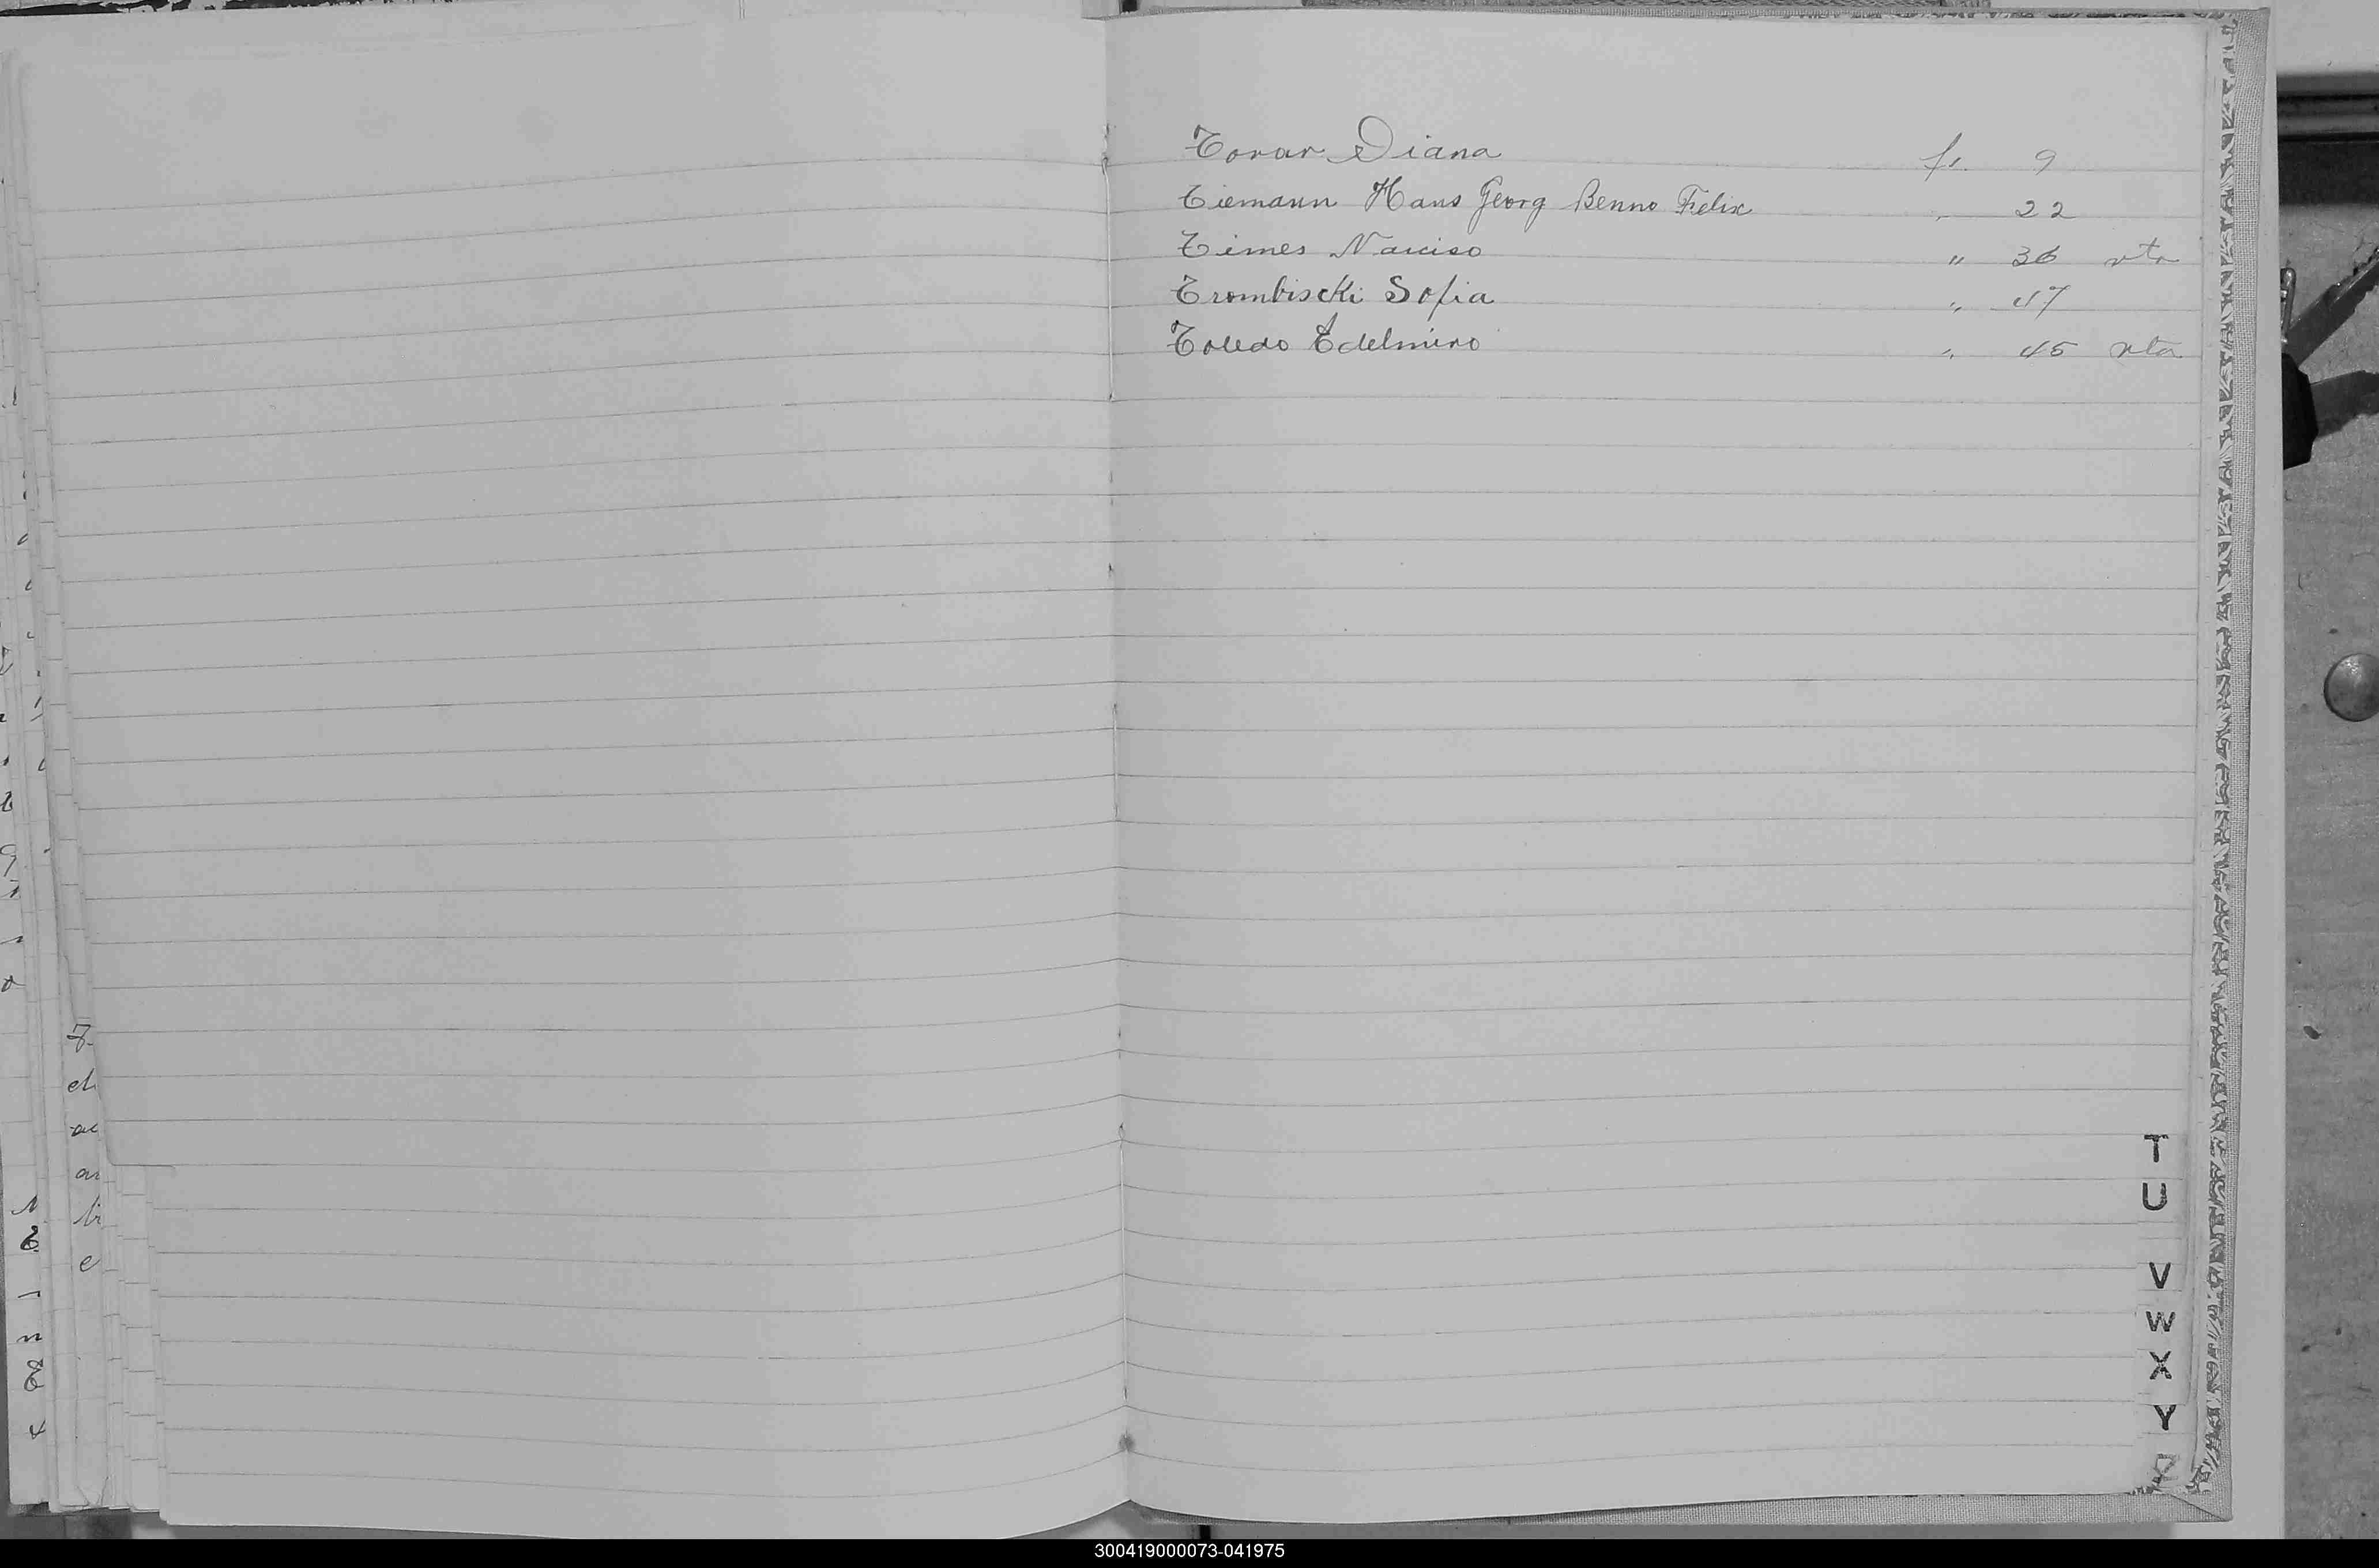 Tovar Diana f. 9
Tiemann Hans Georg Benno Felix " 22
Times Narciso " 36 vta
Trombiscki Sofia " 47
Toledo Edelmiro " 45 vta
T
U
V
W
X
Y
Z
300419000073-041975